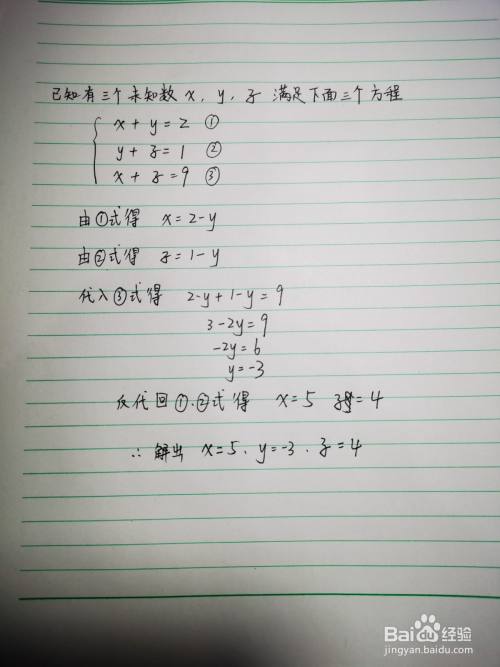 已知有三个未知数 x, y, z 满足下面三个方程
x + y = 2 ①
y + z = 1 ②
x + z = 9 ③
由①式得 x = 2-y
由②式得 z = 1-y
代入③式得 2-y+1-y=9
3-2y=9
-2y=6
y=-3
反代回①、②式得 x=5 z=4
∴ 解出 x=5、y=-3、z=4
Baidu经验
jingyan.baidu.com